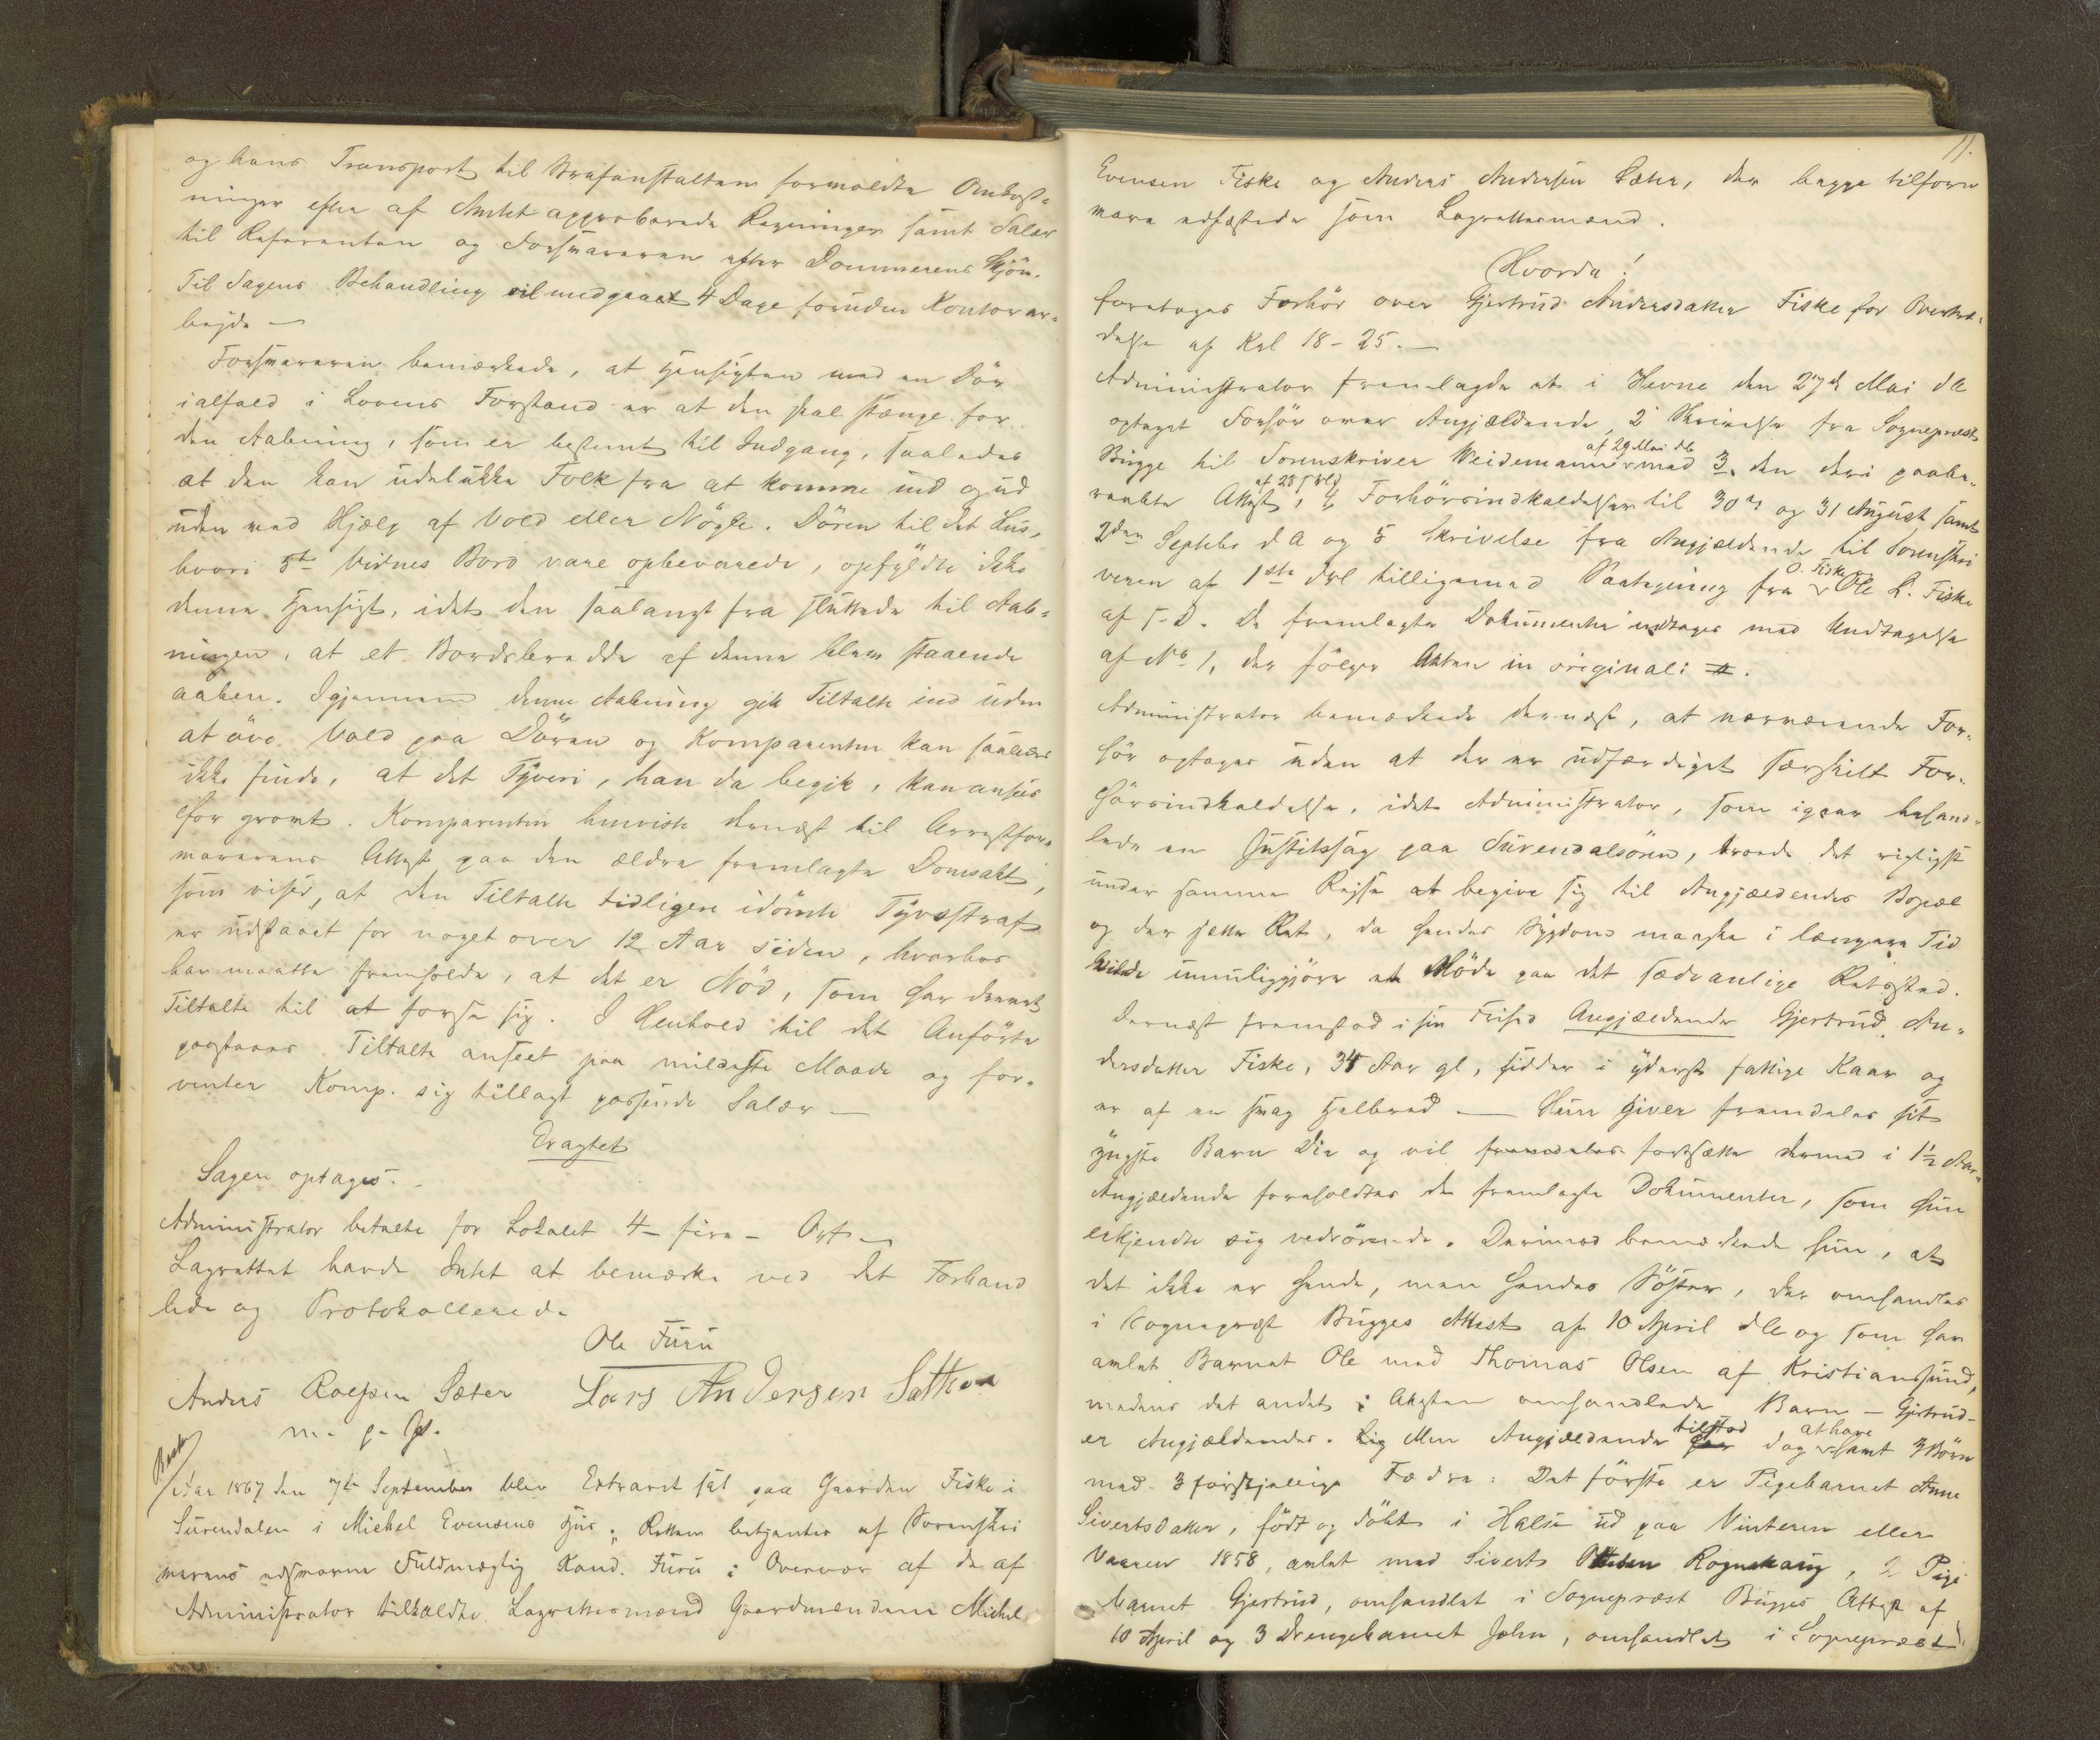 og hans Transport til Strafanstalten formeldte Omkost-
ninger efter af Amtet approberede Regninger samt Salær
til Referenten og Forsvareren efter Dommerens Skjøn.
Til Sagens Behandling vil medgaaet 4 Dage foruden Kontorar-
bejde —
Forsvareren bemærkede, at Hensigten med en Dør
ialfald i Lovens Forstand er at den skal stænge for
den Aabning, som er bestemt til Indgang, saaledes
at den kan udelukke Folk fra at komme ind og ud
uden med Hjælp af Vold eller Nøgle. Døren til det Hus,
hvori 5te Vidnes Bord vare opbevarede, opfyldte ikke
denne Hensigt, idet den saalangt fra sluttede til Aab-
ningen, at et Bordsbredde af denne blev staaende
aaben. Igjennem denne Aabning gik Tiltalte ind uden
at øve Vold paa Døren og Komparenten kan saaledes
ikke finde, at det Tyveri, han da begik, kan ansees
for grovt. Komparenten henviste dernæst til Arrestfor-
varerens Attest paa den ældre fremlagte Domsakt,
som viser, at den Tiltalte tidligere idømte Tyvsstraf
er udstaaet for noget over 12 Aar siden, hvorhos
han maatte fremholde, at det er Nød, som har drevet
Tiltalte til at forse sig. I Henhold til det Anførte
paastaaes Tiltalte anseet paa mildeste Maade og for-
venter Komp. sig tillagt passende Salær —
Eragtet
Sagen optages. -
Administrator betalte for Lokalet 4 - fire - Ort —
Lagrettet havde Intet at bemærke ved det Forhand
lede og Protokollerede
Ole Furu
Anders Roelsen Sæter Lars Andersen Sætter
m. p. P.
Aar 1867 den 7de September blev Extraret sat paa Gaarden Fiske i
Surendalen i Mickel Evensens Hus. Retten betjentes af Sorenskri
verens edsvorne Fuldmægtig Kand. Furu i Overvær af de af
Administrator tilkaldte Lagrettesmænd Gaardmændene Mickel
11.
Evensen Fiske og Anders Andersen Sæter, der begge tilforn
vare edfæstede som Lagrettesmænd.
Hvorda!
foretoges Forhør over Gjertrud Andersdatter Fiske for Overtræ-
delse af Krl 18-25. —
Administrator fremlagde et i Hevne den 27de Mai dA
optaget Forhør over Angjældende, 2 Skrivelse fra Sogneprest
Bugge til Sorenskriver Weidemann af 29 Mai ds med 3, den deri paabe-
raabte Attest af 28 s. M., 4 Forhørsindkaldelser til 30te og 31 August samt
2den Septbr dA og 5 Skrivelse fra Angjældende til Sorenskri
veren af 1ste ds tilligemed Paategning fra O. Fiske Ole L. Fiske
af s. D. De fremlagte Dokumenter indtages med Undtagelse
af No 1, der følger Akten in originali.
Administrator bemærkede dernæst, at nærværende For-
hør optages uden at der er udfærdiget særskilt For-
hørsindkaldelse, idet Administrator, som igaar behand-
lede en Justitssag paa Surendalsøren, troede det rigtigst
under samme Rejse at begive sig til Angjældendes Bopæl
og der sætte Ret, da hendes Sygdom maaske i længere Tid
vilde umuliggjøre et Møde paa det sædvanlige Retssted.
Dernæst fremstod i sin Frihed Angjældende Gjertrud An-
dersdatter Fiske, 34 Aar gl, sidder i yderst fattige Kaar og
er af en svag Helbred. — Hun giver fremdeles sit
yngste Barn Die og vil fremdeles fortsætte dermed i 1½ Aar.
Angjældende foreholdtes de fremlagte Dokumenter, som hun
erkjendte sig vedrørende. Derimod bemærkede hun, at
det ikke er hende, men hendes Søster, der omhandles
i Sogneprest Bugges Attest af 10 April dA og som har
avlet Barnet Ole med Thomas Olsen af Kristianssund,
medens det andet i Attesten omhandlede Barn - Gjertrud -
er Angjældendes. Men Angjældende tilstod dog at have samt 3 Børn
med 3 forskjellige Fædre: Det første er Pigebarnet Anne
Sivertsdatter, født og døbt i Halse ud paa Vinteren eller
Vaaren 1858, avlet med Sivert Ottesen Rognskaug, 2 Pige
barnet Gjertrud, omhandlet i Sogneprest Bugges Attest af
10 April og 3 Drengebarnet John, omhandlet i Sogneprest